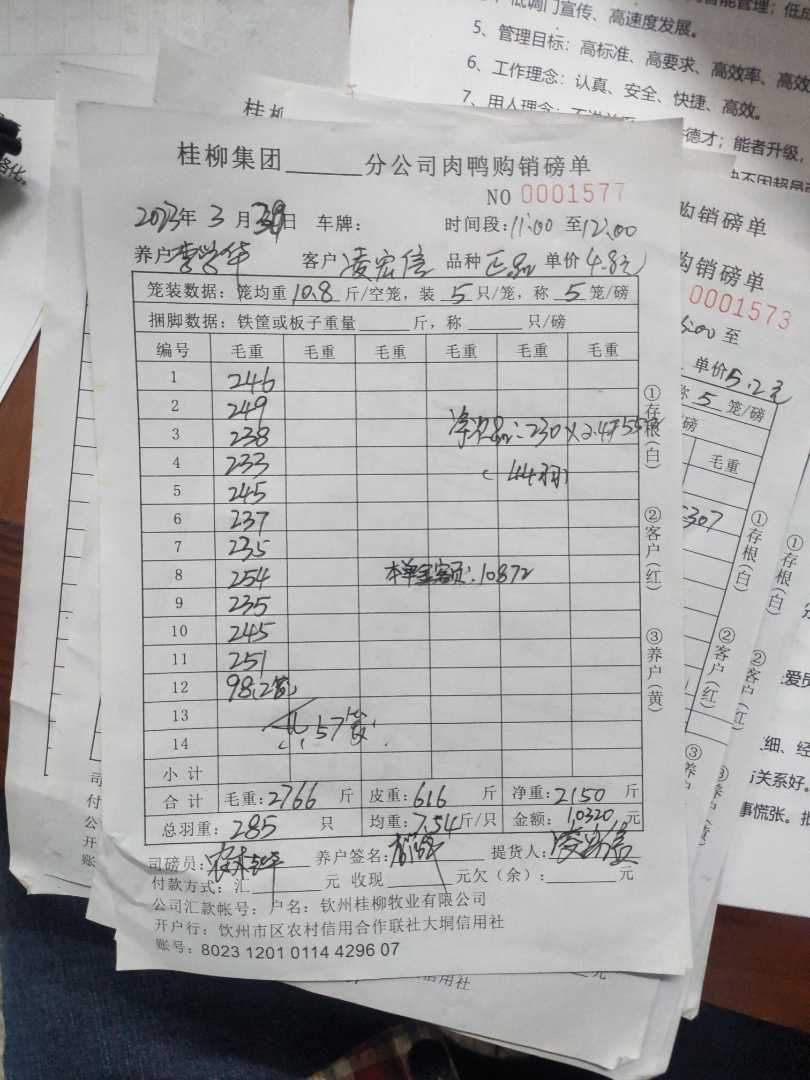 低调门宣传、高速度发展。
5、管理目标：高标准、高要求、高效率、高效
6、工作理念：认真、安全、快捷、高效。
7、用人理念：
德才；能者升级，
智能管理；低成
桂柳
桂柳集团______分公司肉鸭购销磅单
NO 0001577
2023年 3 月 30日 车牌： 时间段：11:00 至12:00
养户李学华 客户凌宏信 品种正品 单价4.8元
笼装数据：笼均重10.8斤/空笼，装 5 只/笼，称 5 笼/磅
捆脚数据：铁筐或板子重量______斤，称______只/磅
编号 毛重 毛重 毛重 毛重 毛重 毛重
1 246
2 249
3 238
4 233
5 245
6 237
7 235
8 254
9 235
10 245
11 251
12 98(2笼)
13
14
共57笼
230×2.4
本单金额：10872
小计
合计 毛重：2766 斤 皮重：616 斤 净重：2150 斤
总羽重：285 只 均重：7.54斤/只 金额：10320元
司磅员： 养户签名： 提货人：凌宏信
付款方式：汇______元 收现______元欠（余）：______元
公司汇款帐号： 户名：钦州桂柳牧业有限公司
开户行：钦州市区农村信用合作联社大垌信用社
账号：8023 1201 0114 4296 07
①存根(白)
②客户(红)
③养户(黄)
购销磅单
购销磅单
0001573
5:00 至
单价5.2元
称 5 笼/磅
磅
毛重
307
①存根(白)
②客户(红)
③养
①存根(白)
②客户(红)
③
细、经
关系好。
事慌张。
信用社